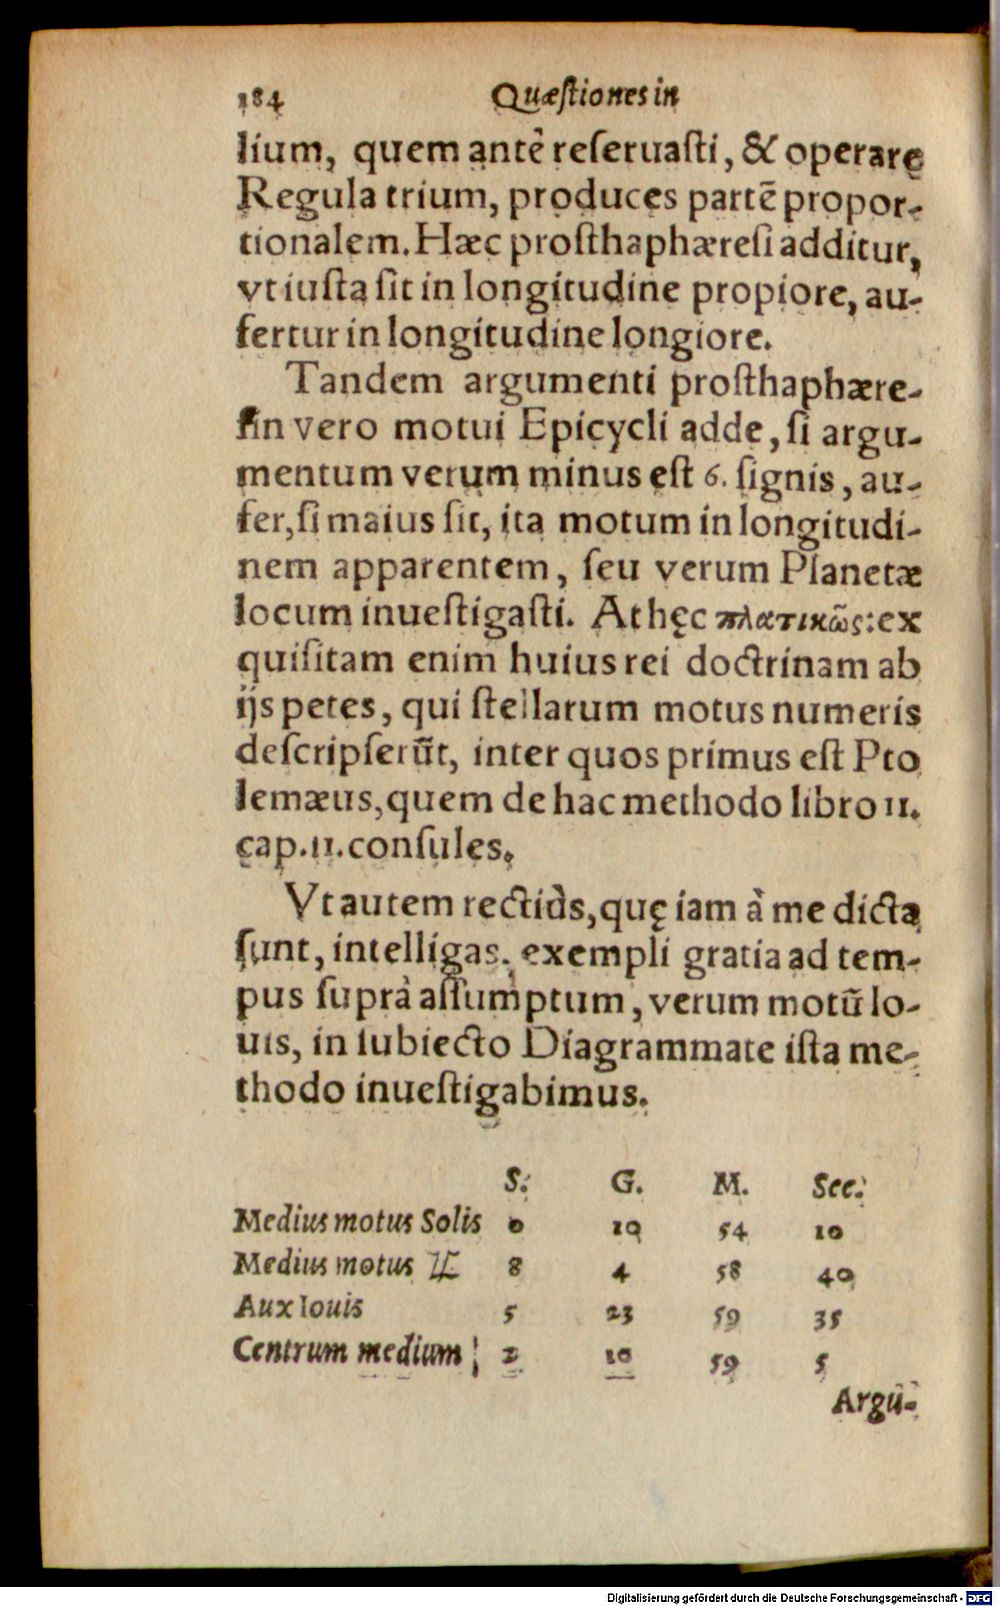 184 Quæſtiones in
lium, quem antè reſeruaſti, & operare
Regula trium, produces partē propor-
tionalem. Hæc proſthaphæreſi additur,
vt iuſta ſit in longitudine propiore, au-
fertur in longitudine longiore.
Tandem argumenti proſthaphære-
ſin vero motui Epicycli adde, ſi argu-
mentum verum minus eſt 6. ſignis, au-
fer, ſi maius ſit, ita motum in longitudi-
nem apparentem, ſeu verum Planetæ
locum inueſtigaſti. At hęc πλατικῶς: ex
quiſitam enim huius rei doctrinam ab
ijs petes, qui ſtellarum motus numeris
deſcripſerūt, inter quos primus eſt Pto
lemæus, quem de hac methodo libro 11.
cap. 11. conſules.
Vt autem rectiùs, quę iam à me dicta
ſunt, intelligas. exempli gratia ad tem-
pus ſuprà aſſumptum, verum motū Io-
uis, in ſubiecto Diagrammate iſta me-
thodo inueſtigabimus.
S. G. M. Sec.
Medius motus Solis 0 19 54 10
Medius motus ♃ 8 4 58 40
Aux Iouis 5 23 59 35
Centrum medium 2 10 59 5
Argu-
Digitalisierung gefördert durch die Deutsche Forschungsgemeinschaft - DFG